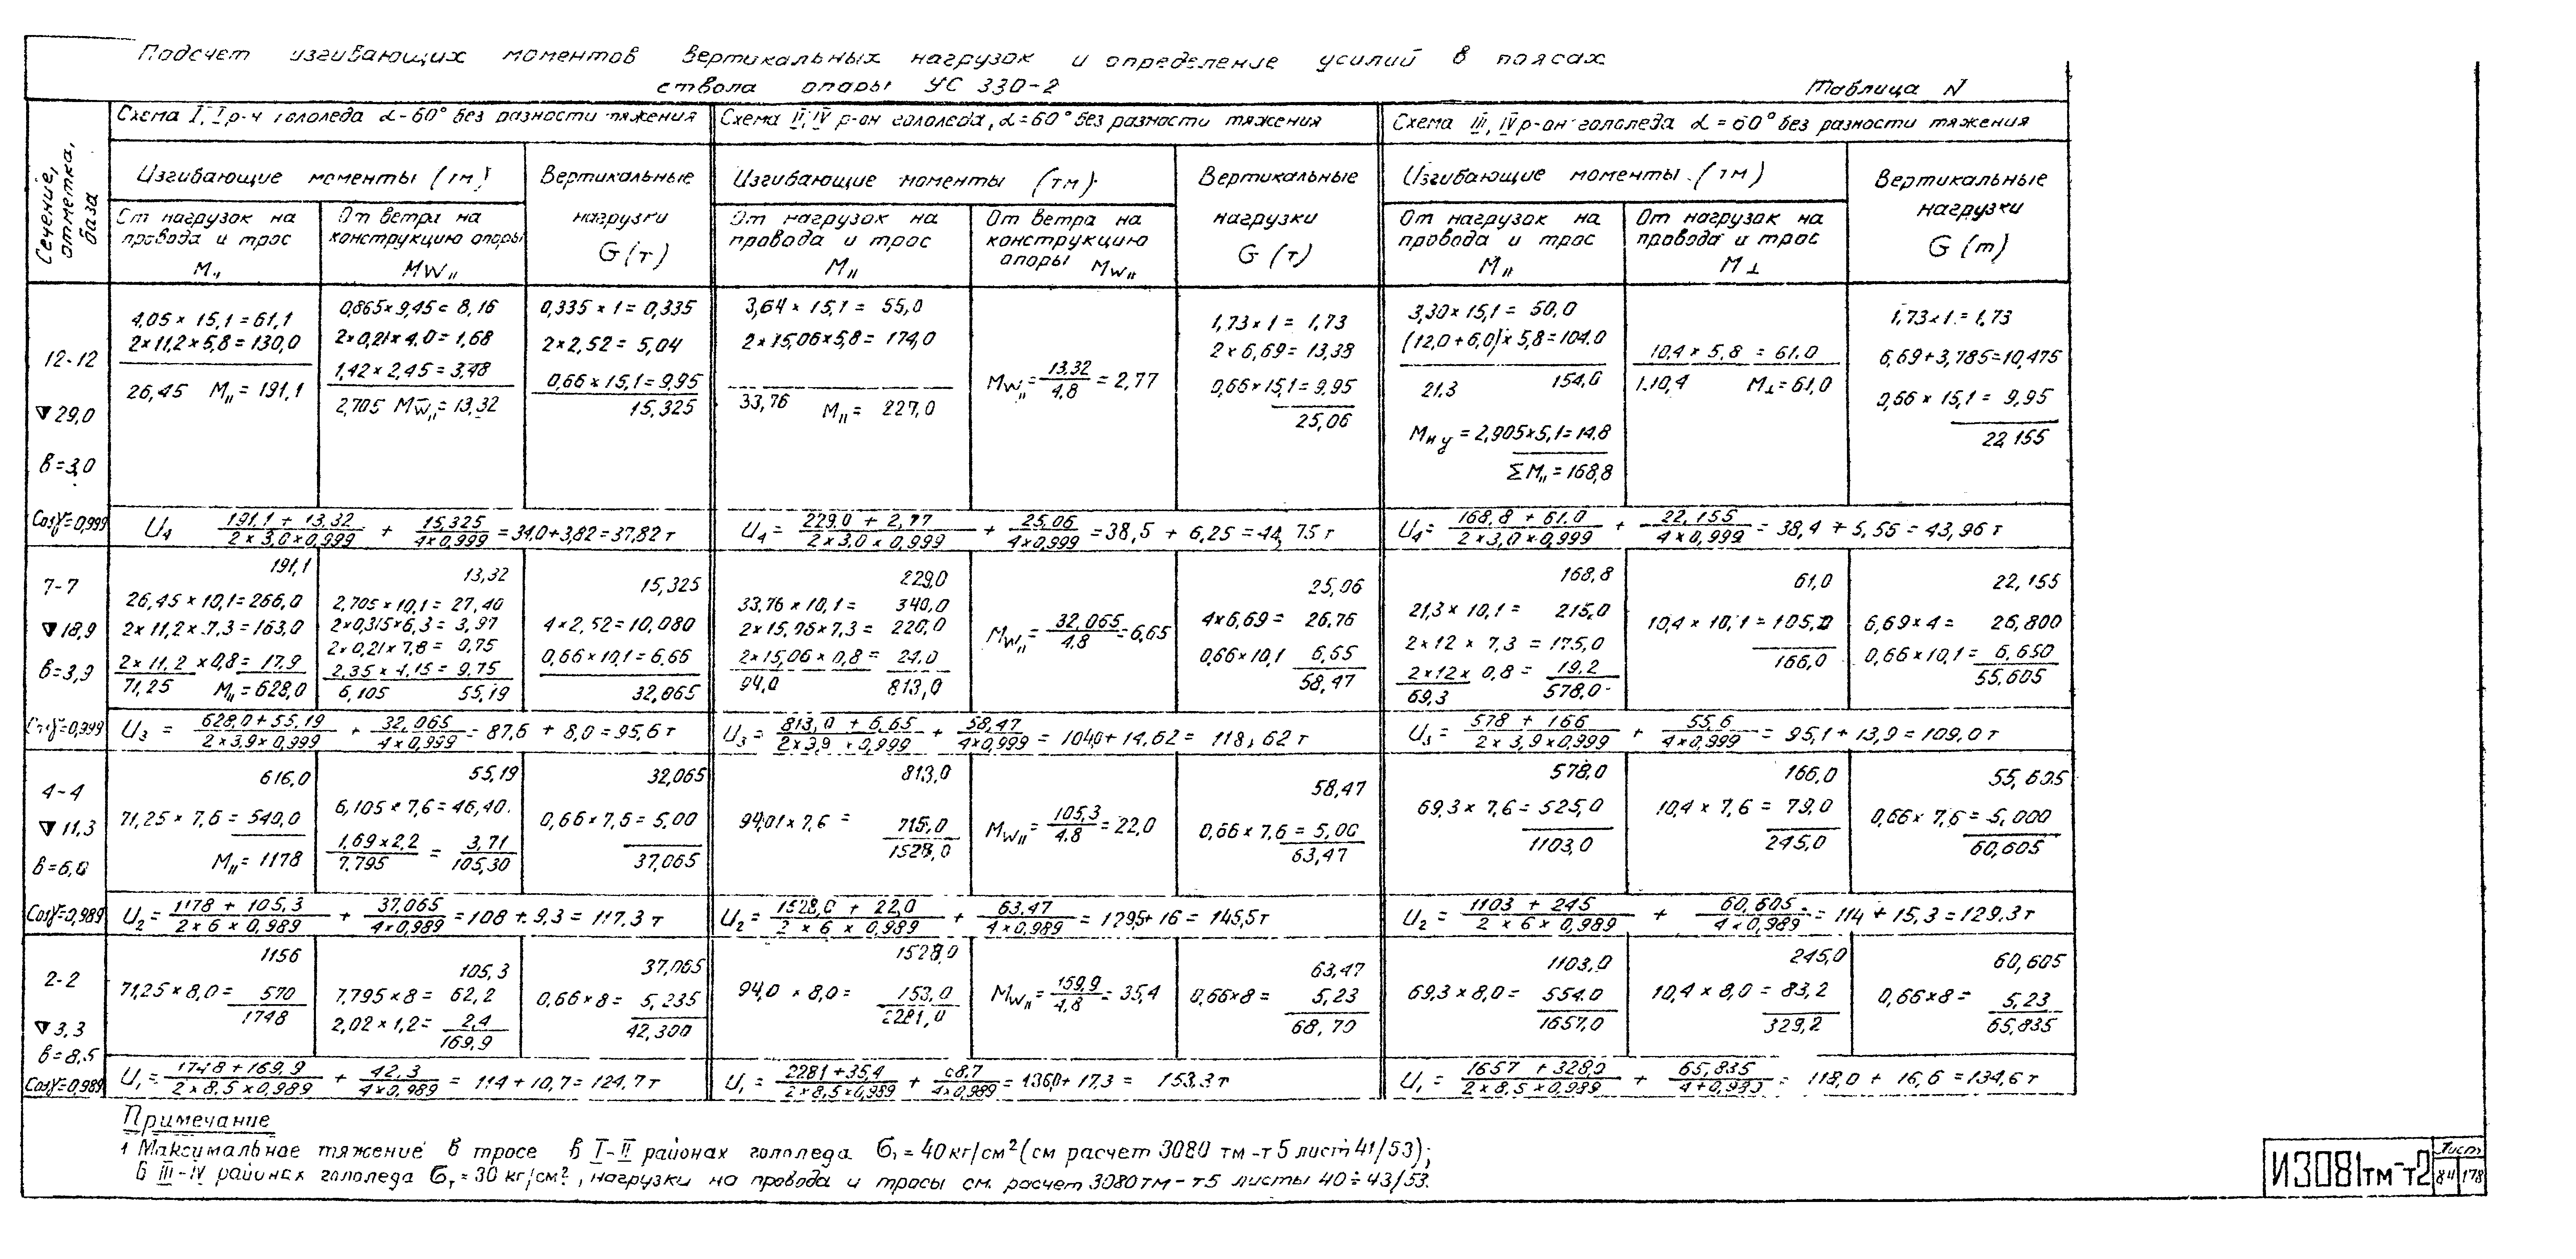 Подсчет изгибающих моментов вертикальных нагрузок и определение усилий в поясах
ствола опоры УС 330-2
Таблица N
Сечение, отметка, база
Схема I, I р-н гололеда α-60° без разности тяжения
Изгибающие моменты (тм)
Вертикальные
нагрузки
G (т)
От нагрузок на
провода и трос
M॥
От ветра на
конструкцию опоры
MW॥
Схема II, IV р-он гололеда, α=60° без разности тяжения
Изгибающие моменты (тм)
Вертикальные
нагрузки
G (т)
От нагрузок на
провода и трос
M॥
От ветра на
конструкцию
опоры MW॥
Схема III, IV р-он гололеда α=60° без разности тяжения
Изгибающие моменты (тм)
Вертикальные
нагрузки
G (т)
От нагрузок на
провода и трос
M॥
От нагрузок на
провода и трос
M⊥
12-12
29,0
в=3,0
Cosγ=0,999
4,05 × 15,1 = 61,1
2×11,2×5,8 = 130,0
26,45 M॥ = 191,1
0,865×9,45 = 8,16
2×0,21×4,0 = 1,68
1,42 × 2,45 = 3,48
2,705 MW॥ = 13,32
0,335 × 1 = 0,335
2×2,52 = 5,04
0,66 × 15,1 = 9,95
15,325
3,64 × 15,1 = 55,0
2×15,06×5,8 = 174,0
33,76 M॥ = 227,0
MW॥ = 13,32/4,8 = 2,77
1,73 × 1 = 1,73
2 × 6,69 = 13,38
0,66 × 15,1 = 9,95
25,06
3,30 × 15,1 = 50,0
(12,0 + 6,0) × 5,8 = 104,0
21,3 154,0
Mну = 2,905×5,1 = 14,8
ΣM॥ = 168,8
10,4 × 5,8 = 61,0
1.10,4 M⊥ = 61,0
1,73×1 = 1,73
6,69+3,785=10,475
0,66 × 15,1 = 9,95
22,155
U4 (191,1 + 13,32)/(2 × 3,0 × 0,999) + 15,325/(4×0,999) = 34,0+3,82 = 37,82 т
U4 = (229,0 + 2,77)/(2 × 3,0 × 0,999) + 25,06/(4×0,999) = 38,5 + 6,25 = 44,75 т
U4 = (168,8 + 61,0)/(2 × 3,0 × 0,999) + 22,155/(4 × 0,999) = 38,4 + 5,56 = 43,96 т
7-7
18,9
в=3,9
Cosγ=0,999
191,1
26,45 × 10,1 = 266,0
2× 11,2×7,3 = 163,0
2× 11,2 ×0,8 = 17,9
71,25 M॥ = 628,0
13,32
2,705 ×10,1 = 27,40
2×0,315×6,3 = 3,97
2×0,21×7,8 = 0,75
2,35 × 4,15 = 9,75
6,105 55,19
15,325
4×2,52=10,080
0,66×10,1=6,66
32,065
229,0
33,76 ×10,1 = 340,0
2×15,06×7,3 = 220,0
2×15,06 × 0,8 = 24,0
94,0 813,0
MW॥ = 32,065/4,8 = 6,65
25,06
4×6,69= 26,76
0,66×10,1 6,65
58,47
168,8
21,3 × 10,1 = 215,0
2×12 × 7,3 = 175,0
2×12× 0,8 = 19,2
69,3 578,0
61,0
10,4 × 10,1 = 105,0
166,0
22,155
6,69×4 = 26,800
0,66×10,1 = 6,650
55,605
U3 = (628,0+55,19)/(2×3,9×0,999) + 32,065/(4×0,999) = 87,6 + 8,0 = 95,6 т
U3 = (813,0 + 6,65)/(2×3,9 ×0,999) + 58,47/(4×0,999) = 104,0+14,62 = 118,62 т
U3 = (578 + 166)/(2 × 3,9×0,999) + 55,6/(4×0,999) = 95,1 + 13,9 = 109,0 т
4-4
11,3
в=6,0
Cosγ=0,989
616,0
71,25 × 7,6 = 540,0
M॥ = 1178
55,19
6,105 × 7,6 = 46,40
1,69×2,2 = 3,71
7,795 105,30
32,065
0,66×7,6 = 5,00
37,065
813,0
94,01×7,6 = 715,0
1528,0
MW॥ = 105,3/4,8 = 22,0
58,47
0,66 × 7,6 = 5,00
63,47
578,0
69,3 × 7,6 = 525,0
1103,0
166,0
10,4 × 7,6 = 79,0
245,0
55,605
0,66× 7,6 = 5,000
60,605
U2 = (1178 + 105,3)/(2 × 6 × 0,989) + 37,065/(4×0,989) = 108 + 9,3 = 117,3 т
U2 = (1528,0 + 22,0)/(2 × 6 × 0,989) + 63,47/(4×0,989) = 129,5+ 16 = 145,5 т
U2 = (1103 + 245)/(2 × 6× 0,989) + 60,605/(4×0,989) = 114 + 15,3 = 129,3 т
2-2
3,3
в=8,5
Cosγ=0,989
1156
71,25 × 8,0 = 570
1748
105,3
7,795 ×8 = 62,2
2,02 × 1,2 = 2,4
169,9
37,065
0,66×8 = 5,235
42,300
1528,0
94,0 × 8,0 = 153,0
2281,0
MW॥ = 169,9/4,8 = 35,4
63,47
0,66×8 = 5,23
68,70
1103,0
69,3 × 8,0 = 554,0
1657,0
245,0
10,4 × 8,0 = 83,2
329,2
60,605
0,66×8 = 5,23
65,835
U1 = (1748 + 169,9)/(2× 8,5 ×0,989) + 42,3/(4×0,989) = 114 + 10,7 = 124,7 т
U1 = (2281 +35,4)/(2×8,5×0,989) + 68,7/(4×0,989) = 136,0+ 17,3 = 153,3 т
U1 = (1657 + 328,0)/(2 × 8,5 ×0,989) + 65,835/(4+0,989) = 118,0 + 16,6 = 134,6 т
Примечание
1 Максимальное тяжение в тросе в I-II районах гололеда бт = 40 кг/см² (см расчет 3080 тм-т5 лист 41/53);
в III-IV районах гололеда бт = 30 кг/см², нагрузки на провода и тросы см. расчет 3080 тм-т5 листы 40÷43/53.
И3081тм-т2
Лист
84 178